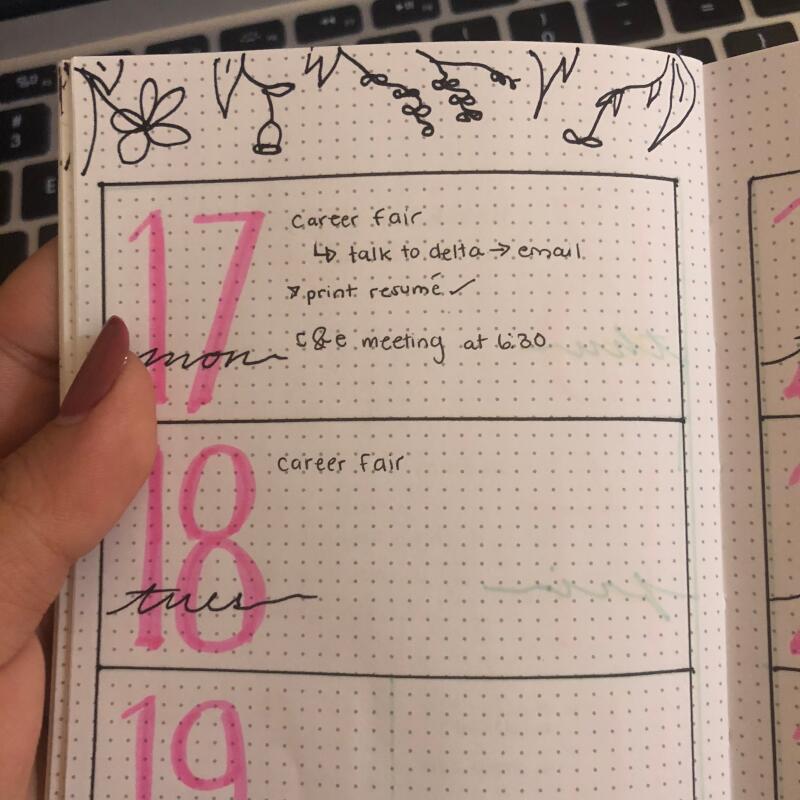 17
mon
career fair
↳ talk to delta → email
print resumé ✓
c&e meeting at 6:30
18
tues
career fair
19
#
3
E